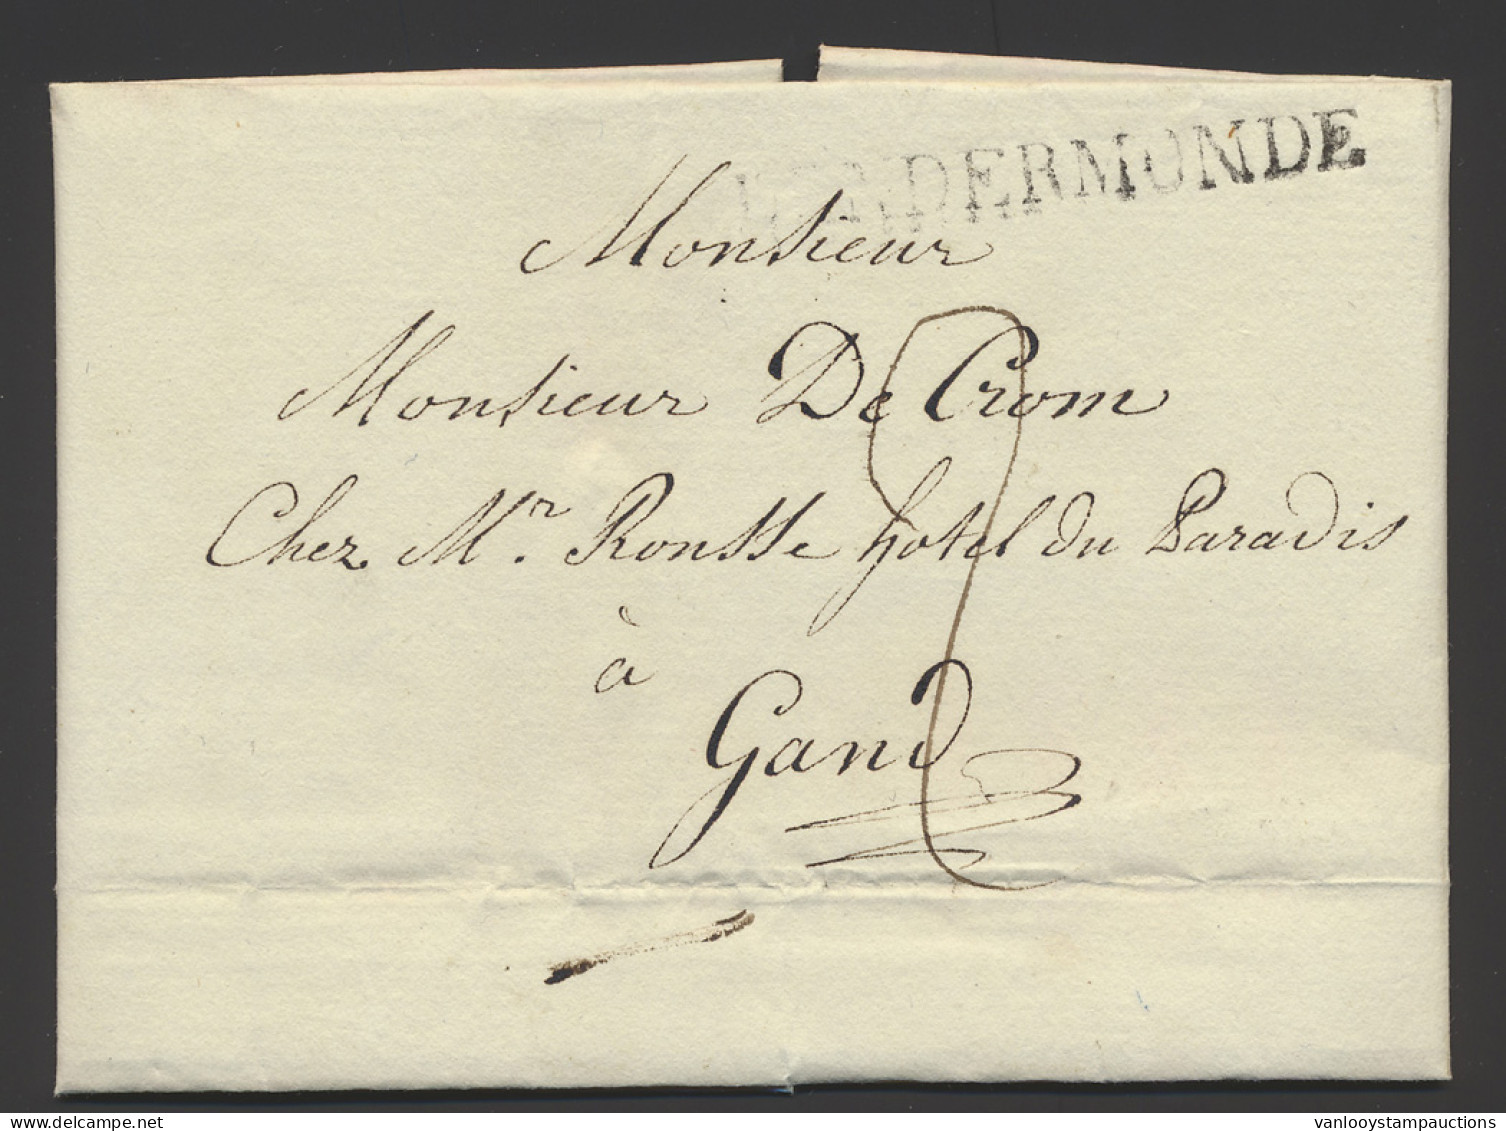 DENDERMONDE
Monsieur
Monsieur De Crom
Chez Mr. Rousse hotel du Paradis
à
Gand
delcampe.net
vanlooystampauctions